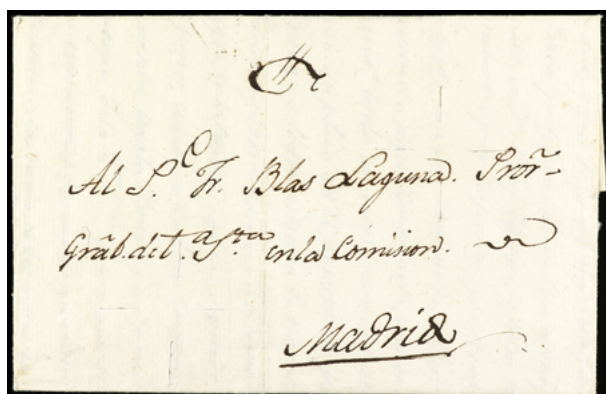 Al P.e Fr. Blas Laguna. Pror.
Gràb. del t.a S.ta en la Comision.
Madrid